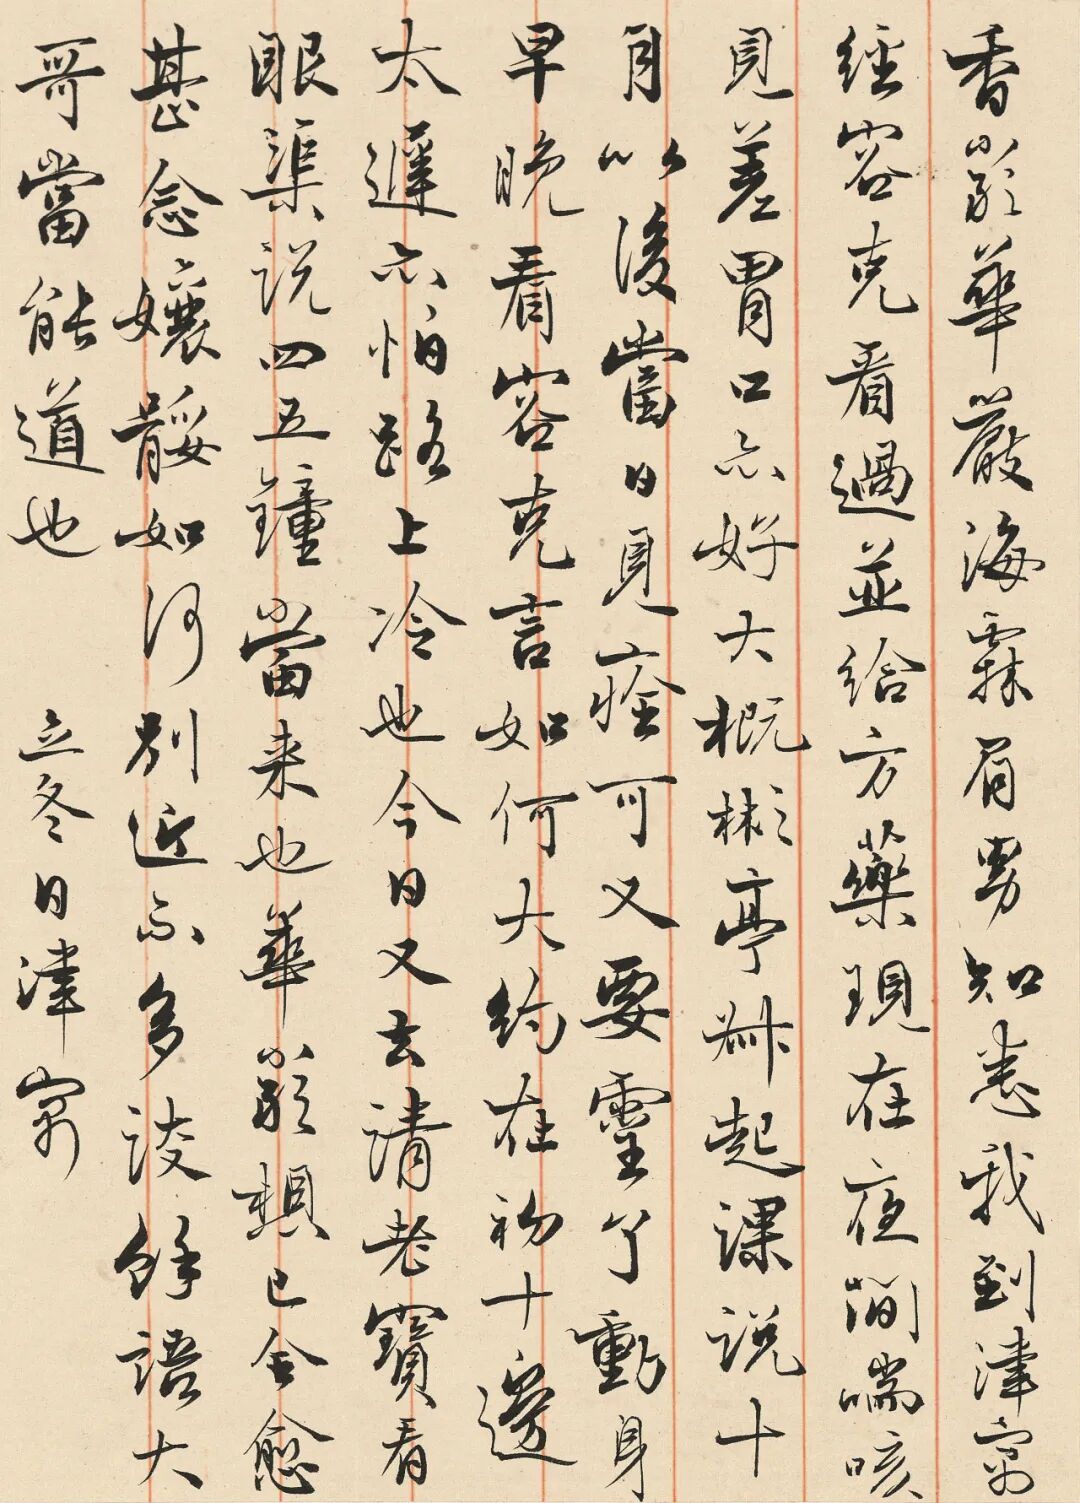 香嚴華嚴海霖眉男知悉我到津寓
經容克看過並給方藥現在夜間喘咳
見差胃口亦好大概彬亭舞起課说十
月以後當日見痊可又要靈了動身
早晚看容克言如何大約在初十邊
太遲亦怕路上冷也今日又去請老寶看
眼渠说四五鐘當来也華嚴想已全愈
甚念孃如何別近不多談餘語大
哥當能道也 立冬日津寓